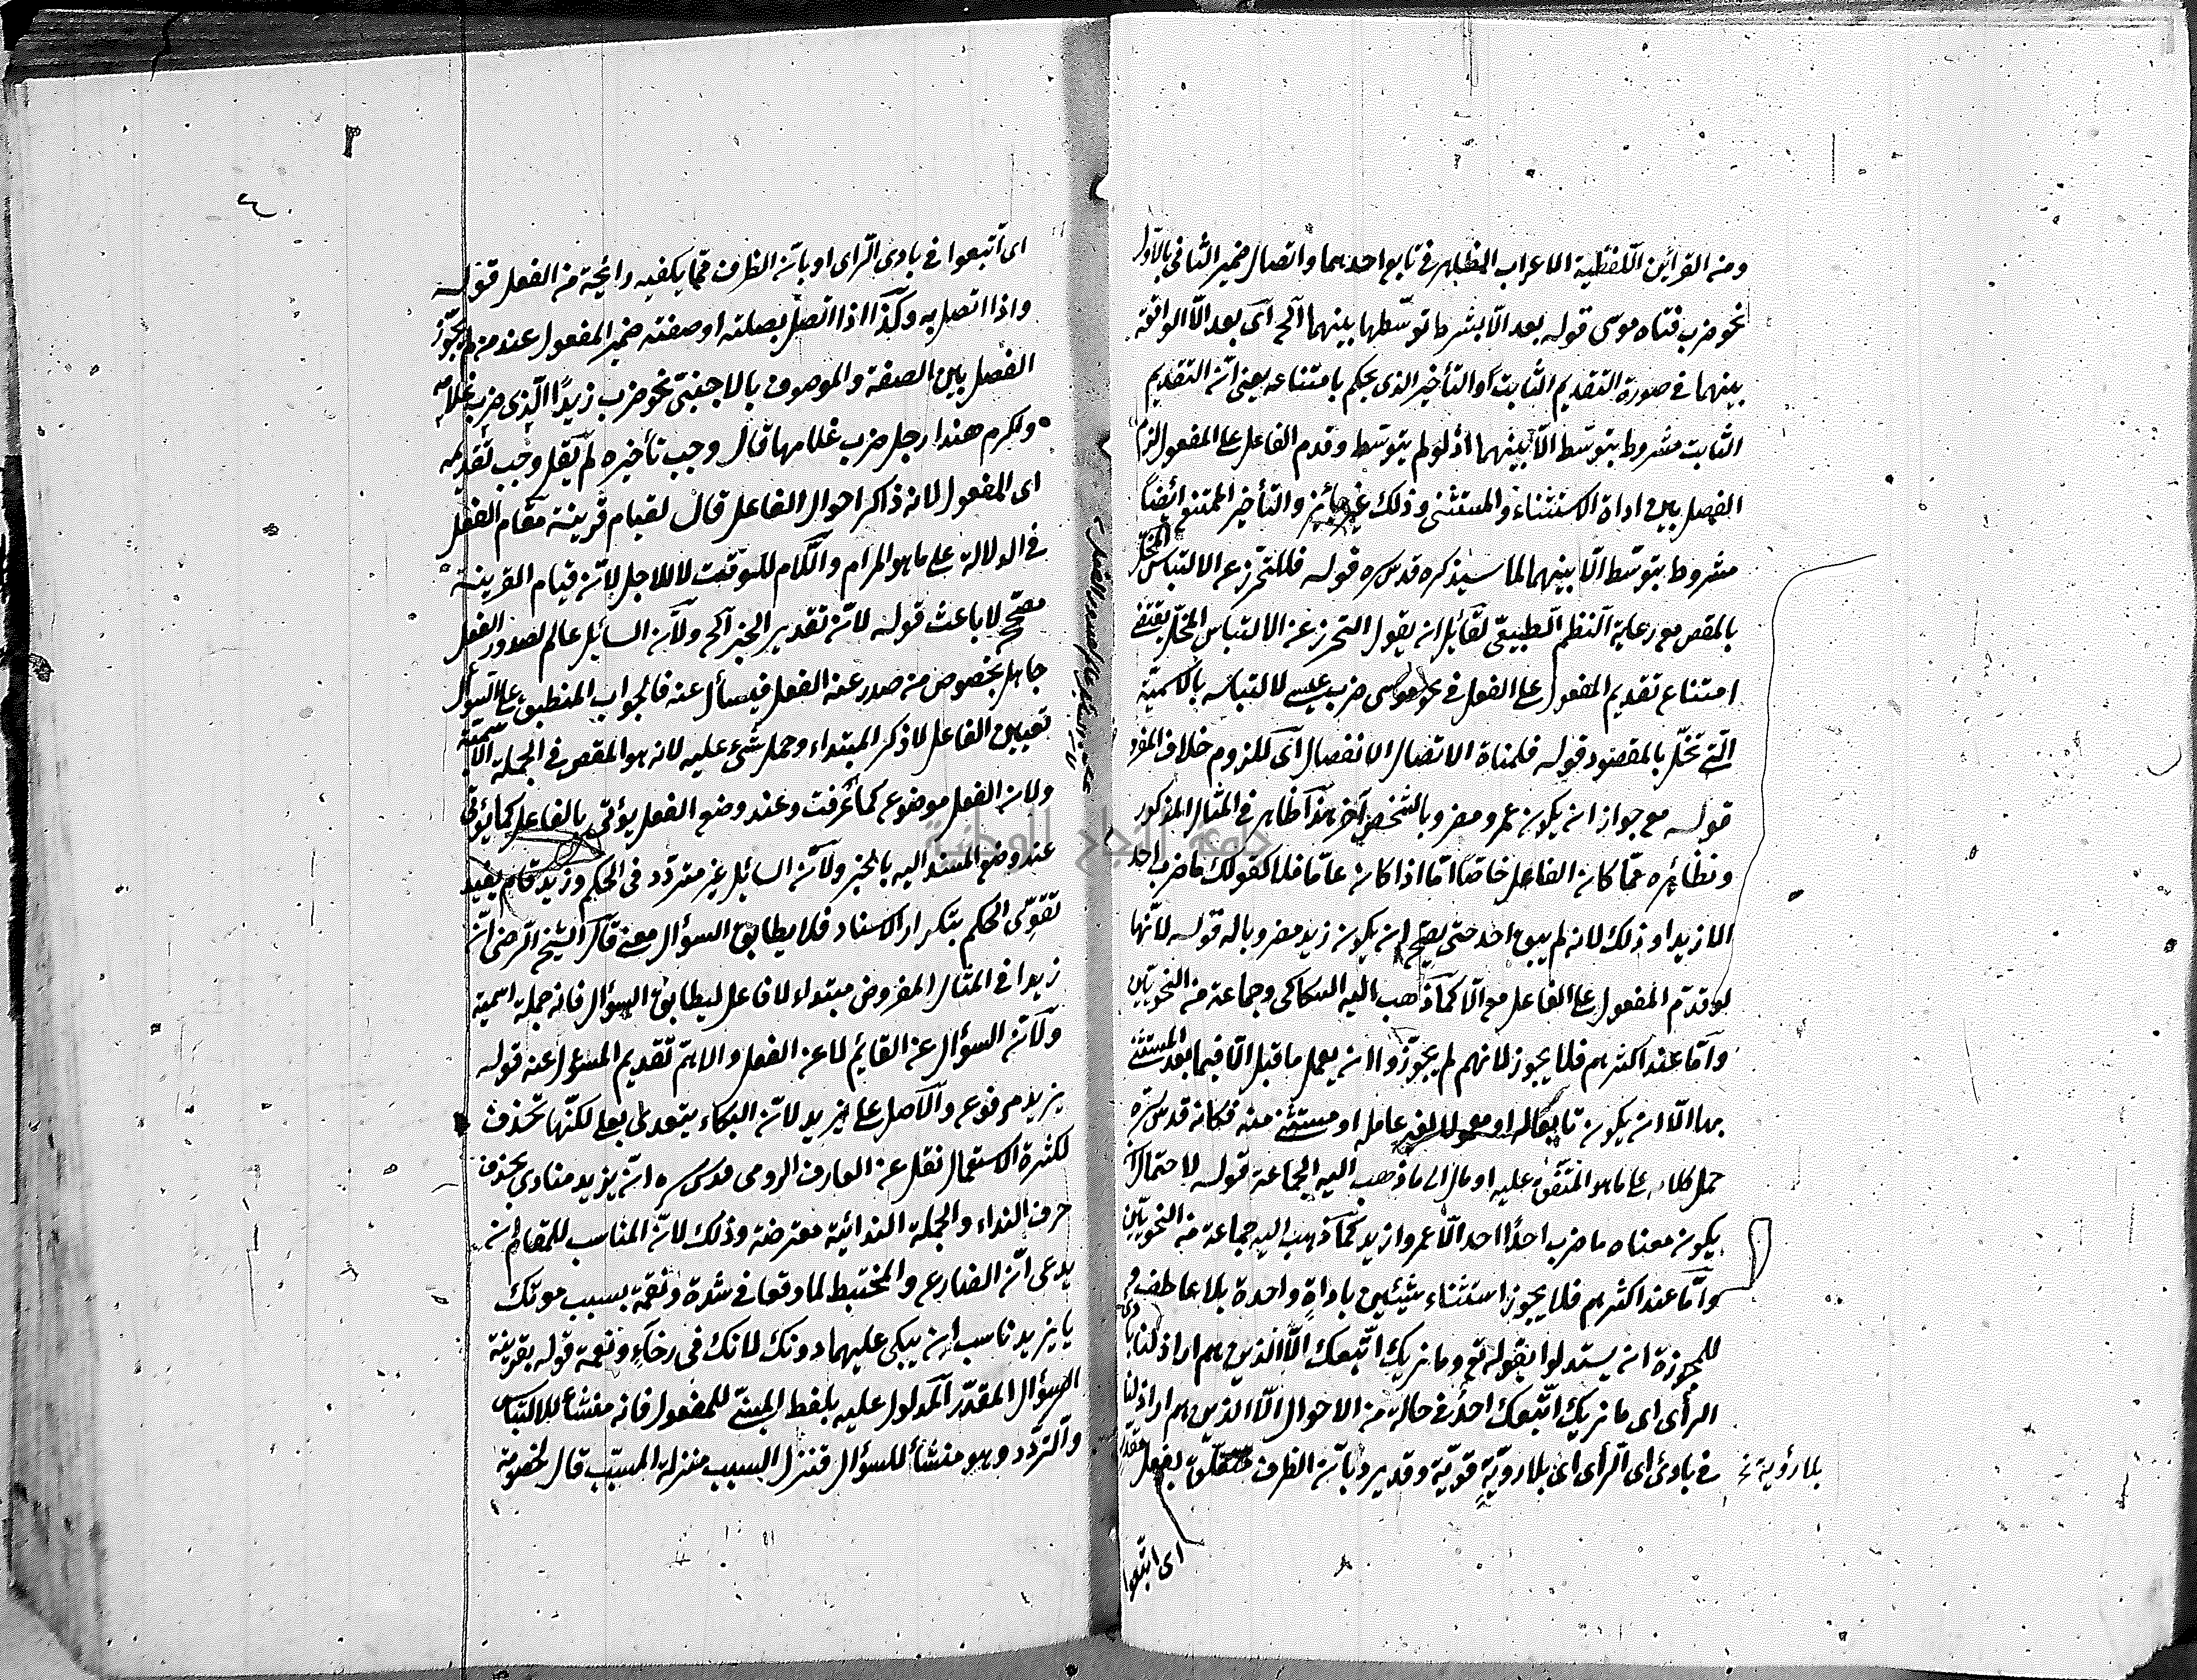 ومن القرائن اللفظية الاعراب الظاهر في تابع احدهما واتصال ضمير الثاني بالاول
نحو ضرب فتاه موسى قوله بعد الا بشرط توسطها بينهما الخ اى بعد الا الواقعة
بينهما في صورة التقديم الثابت والتأخير الذى يحكم بامتناعه يعنى ان التقديم
الثابت مشروط بتوسط الا بينهما اذ لو لم يتوسط وقدم الفاعل على المفعول لزم
الفصل بين اداة الاستثناء والمستثنى وذلك غير جائز والتأخير الممتنع ايضا
مشروط بتوسط الا بينهما لما سيذكره قدس سره قوله فللتحرز عن الالتباس المخل
بالمقص مع رعاية النظم الطبيعى لقائل ان يقول التحرز عن الالتباس المخل يقتضى
امتناع تقديم المفعول على الفعل في نحو موسى ضرب عيسى لالتباسه بالاسمية
التى تخل بالمقصود قوله فلمنافاة الاتصال الانفصال اى للزوم خلاف المفر
قوله مع جواز ان يكون عمرو مضروبا لشخص آخر هذا ظاهر في المثال المذكور
ونظائره مما كان الفاعل خاصا اما اذا كان عاما فلا كقولك ما ضرب احد
الا زيدا وذلك لانه لم يبق احد حتى يصح ان يكون زيد مضروبا له قوله لانها
لو قدم المفعول على الفاعل مع الا كما ذهب اليه السكاكى وجماعة من النحويين
واما عند اكثرهم فلا يجوز لانهم لم يجوزوا ان يعمل ما قبل الا فيما بعد المستثنى
بها الا ان يكون تابعا له او معمولا لغير عامله او مستثنى منه فكانه قدس سره
حمل كلامه على ما هو المتفق عليه او مال الى ما ذهب اليه الجماعة قوله لاحتمال ان
يكون معناه ما ضرب احدا احد الا عمروا زيد كما ذهب اليه جماعة من النحويين
واما عند اكثرهم فلا يجوز استثناء شيئين باداة واحدة بلا عاطف و
للمجوزة ان يستدلوا بقوله تع وما نريك اتبعك الا الذين هم اراذلنا بادى
الرأى اى ما نريك اتبعك احد في حالة من الاحوال الا الذين هم اراذلنا
في بادئ اى الرأى اى بلا روية قوية وقد يرد بان الظرف متعلق بفعل مقدر
بلا رؤية نخ
اى اتبعوا
٤
اى اتبعوا في بادى الراى او بان الظرف مما يكفيه رائحة من الفعل قوله
واذا اتصل به وكذا اذا اتصل بصلته او صفته ضمير المفعول عند من لم يجوز
الفصل بين الصفة والموصوف بالاجنبى نحو ضرب زيدا الذى ضرب غلامه
واكرم هندا رجل ضرب غلامها قال وجب تأخيره لم يقل وجب تقديمه
اى المفعول لانه ذاكر احوال الفاعل قال لقيام قرينة مقام الفعل
في الدلالة على ما هو المرام واللام للتوقيت لا للاجل لان قيام القرينة
مصحح لا باعث قوله لان تقدير الخبر الخ ولان السائل عالم لصدور الفعل
جاهل بخصوص من صدر عنه الفعل فيسأل عنه فالجواب المنطبق على السؤال
تعيين الفاعل لا ذكر المبتداء وحمل شئ عليه لانه هو المقص في الجملة الاسمية
ولان الفعل موضوع كما عرفت وعند وضع الفعل يؤتى بالفاعل كما يؤتى
عند وضع المسند اليه بالخبر ولان السائل غير متردد في الحكم وزيد قام يفيد
تقوى الحكم بتكرار الاسناد فلا يطابق السؤال معنى قال الشيخ الرضى ان
زيدا في المثال المفروض مبتداء لا فاعل ليطابق السؤال فانه جملة اسمية
ولان السؤال عن القائم لا عن الفعل والاهم تقديم المسؤل عنه قوله
يزيد مرفوع والاصل على يزيد لان البكاء يتعدى بعلى لكنها تحذف
لكثرة الاستعمال نقل عن العارف الرومى قدس سره ان يزيد منادى بحذف
حرف النداء والجملة الندائية معترضة وذلك لان المناسب للمقام ان
يدعى ان الضارع والمختبط لما وقعا في شدة ونقمة بسبب موتك
يا يزيد ناسب ان يبكى عليهما دونك لانك في رخاء ونعمة قوله بقرينة
السؤال المقدر المدلول عليه بلفظ المبنى للمفعول فانه منشاء للالتباس
والتردد وهو منشأ للسؤال فتنزل السبب منزلة المسبب قال لخصومة
جامعة النجاح الوطنية